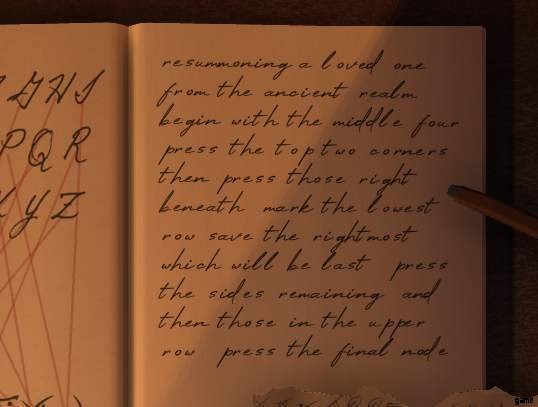 G H I
P Q R
Y Z
resummoning a loved one
from the ancient realm
begin with the middle four
press the top two corners
then press those right
beneath mark the lowest
row save the rightmost
which will be last press
the sides remaining and
then those in the upper
row press the final node
game